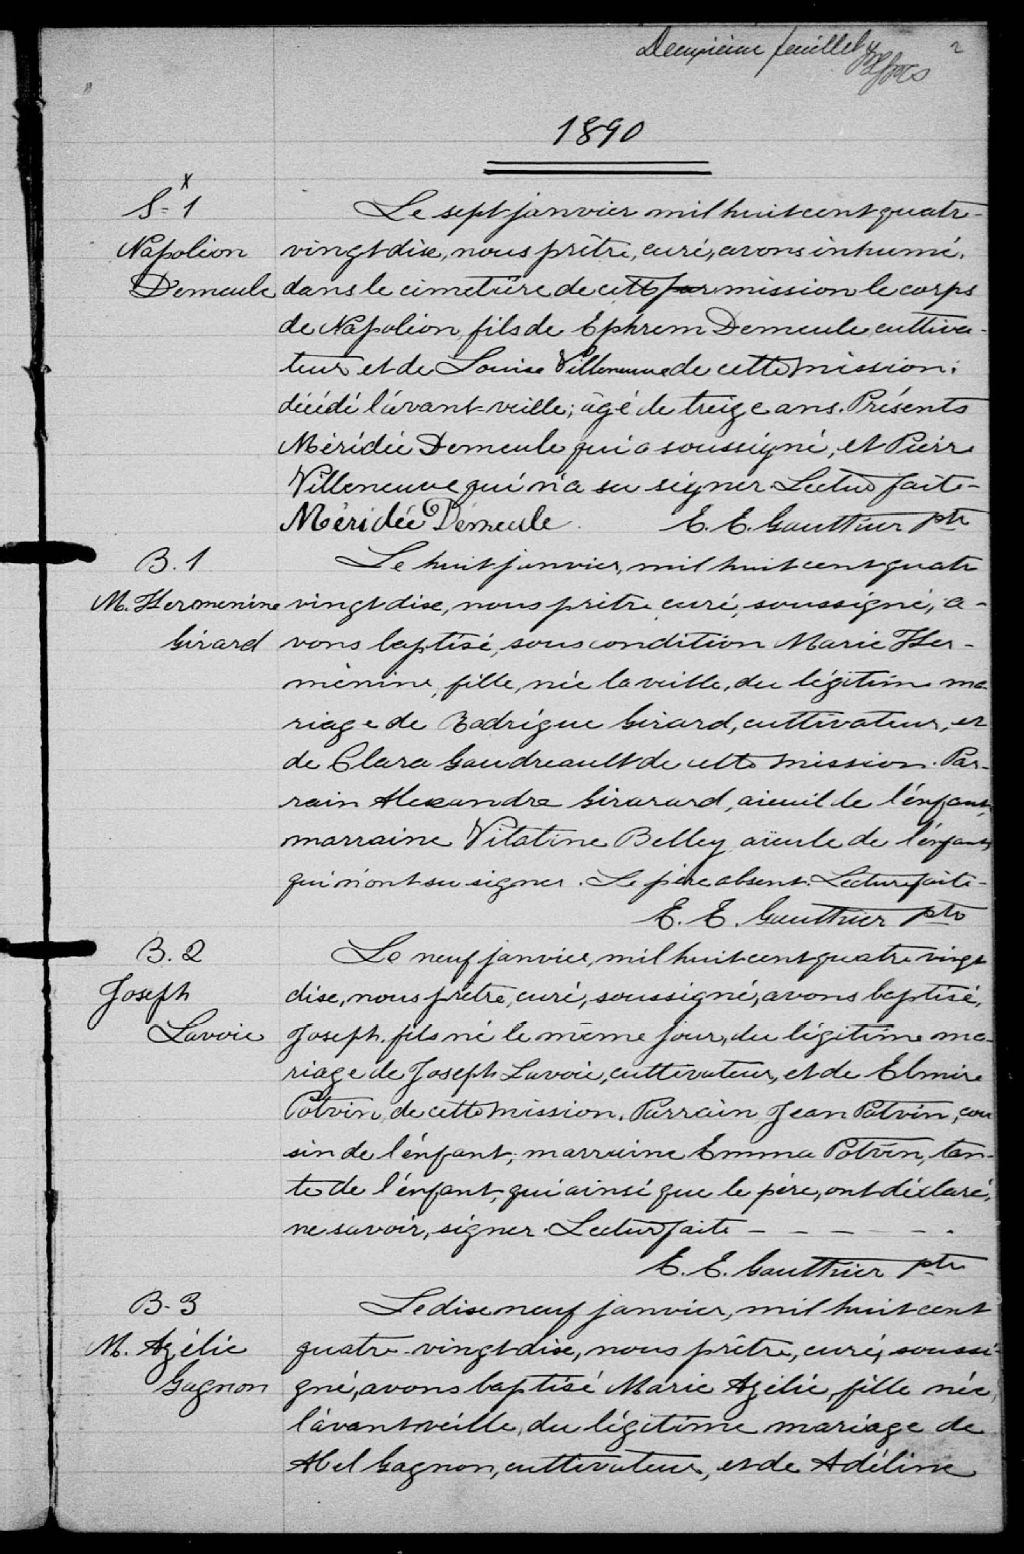 Deuxième feuillet
2
1890
x
S-1
Napoléon
Demeule
Le sept janvier mil huit cent quatre-
vingt dix, nous prêtre, curé, avons inhumé,
dans le cimetière de cette par mission le corps
de Napoléon, fils de Ephrem Demeule cultiva-
teur et de Louise Villeneuve de cette mission;
décédé l'avant-veille; âgé de treize ans. Présents
Méridée Demeule qui a soussigné, et Pierre
Villeneuve qui n'a su signer. Lecture faite-
Méridée Demeule. E. E. Gauthier ptr
B. 1
M. Hermenine
Girard
Le huit janvier, mil huit cent quatre
vingt dix, nous prêtre curé, soussigné, a-
vons baptisé, sous condition Marie Her-
ménine, fille, née la veille, du légitime ma-
riage de Rodrigue Girard, cultivateur, et
de Clara Gaudreault de cette mission. Par-
rain Alexandre Girarard, aieuil de l'enfant,
marraine Vitatine Belley aïeule de l'enfant,
qui n'ont su signer. Le père absent. Lecture faite-
E. E. Gauthier ptr
B. 2
Joseph
Lavoie
Le neuf janvier, mil huit cent quatre vingt
dix, nous prêtre, curé, soussigné, avons baptisé,
Joseph, fils né le même jour, du légitime ma-
riage de Joseph Lavoie, cultivateur, et de Elmire
Potvin, de cette mission. Parrain Jean Potvin, cou
sin de l'enfant; marraine Emma Potvin, tan-
te de l'enfant, qui ainsi que le père, ont déclaré,
ne savoir, signer. Lecture faite - - - - - -
E. E. Gauthier ptr
B-3
M. Azélie
Gagnon
Le dix neuf janvier, mil huit cent
quatre-vingt dix, nous prêtre, curé, soussi-
gné, avons baptisé Marie Azélie, fille née,
l'avant veille, du légitime mariage de
Abel Gagnon, cultivateur, et de Adéline